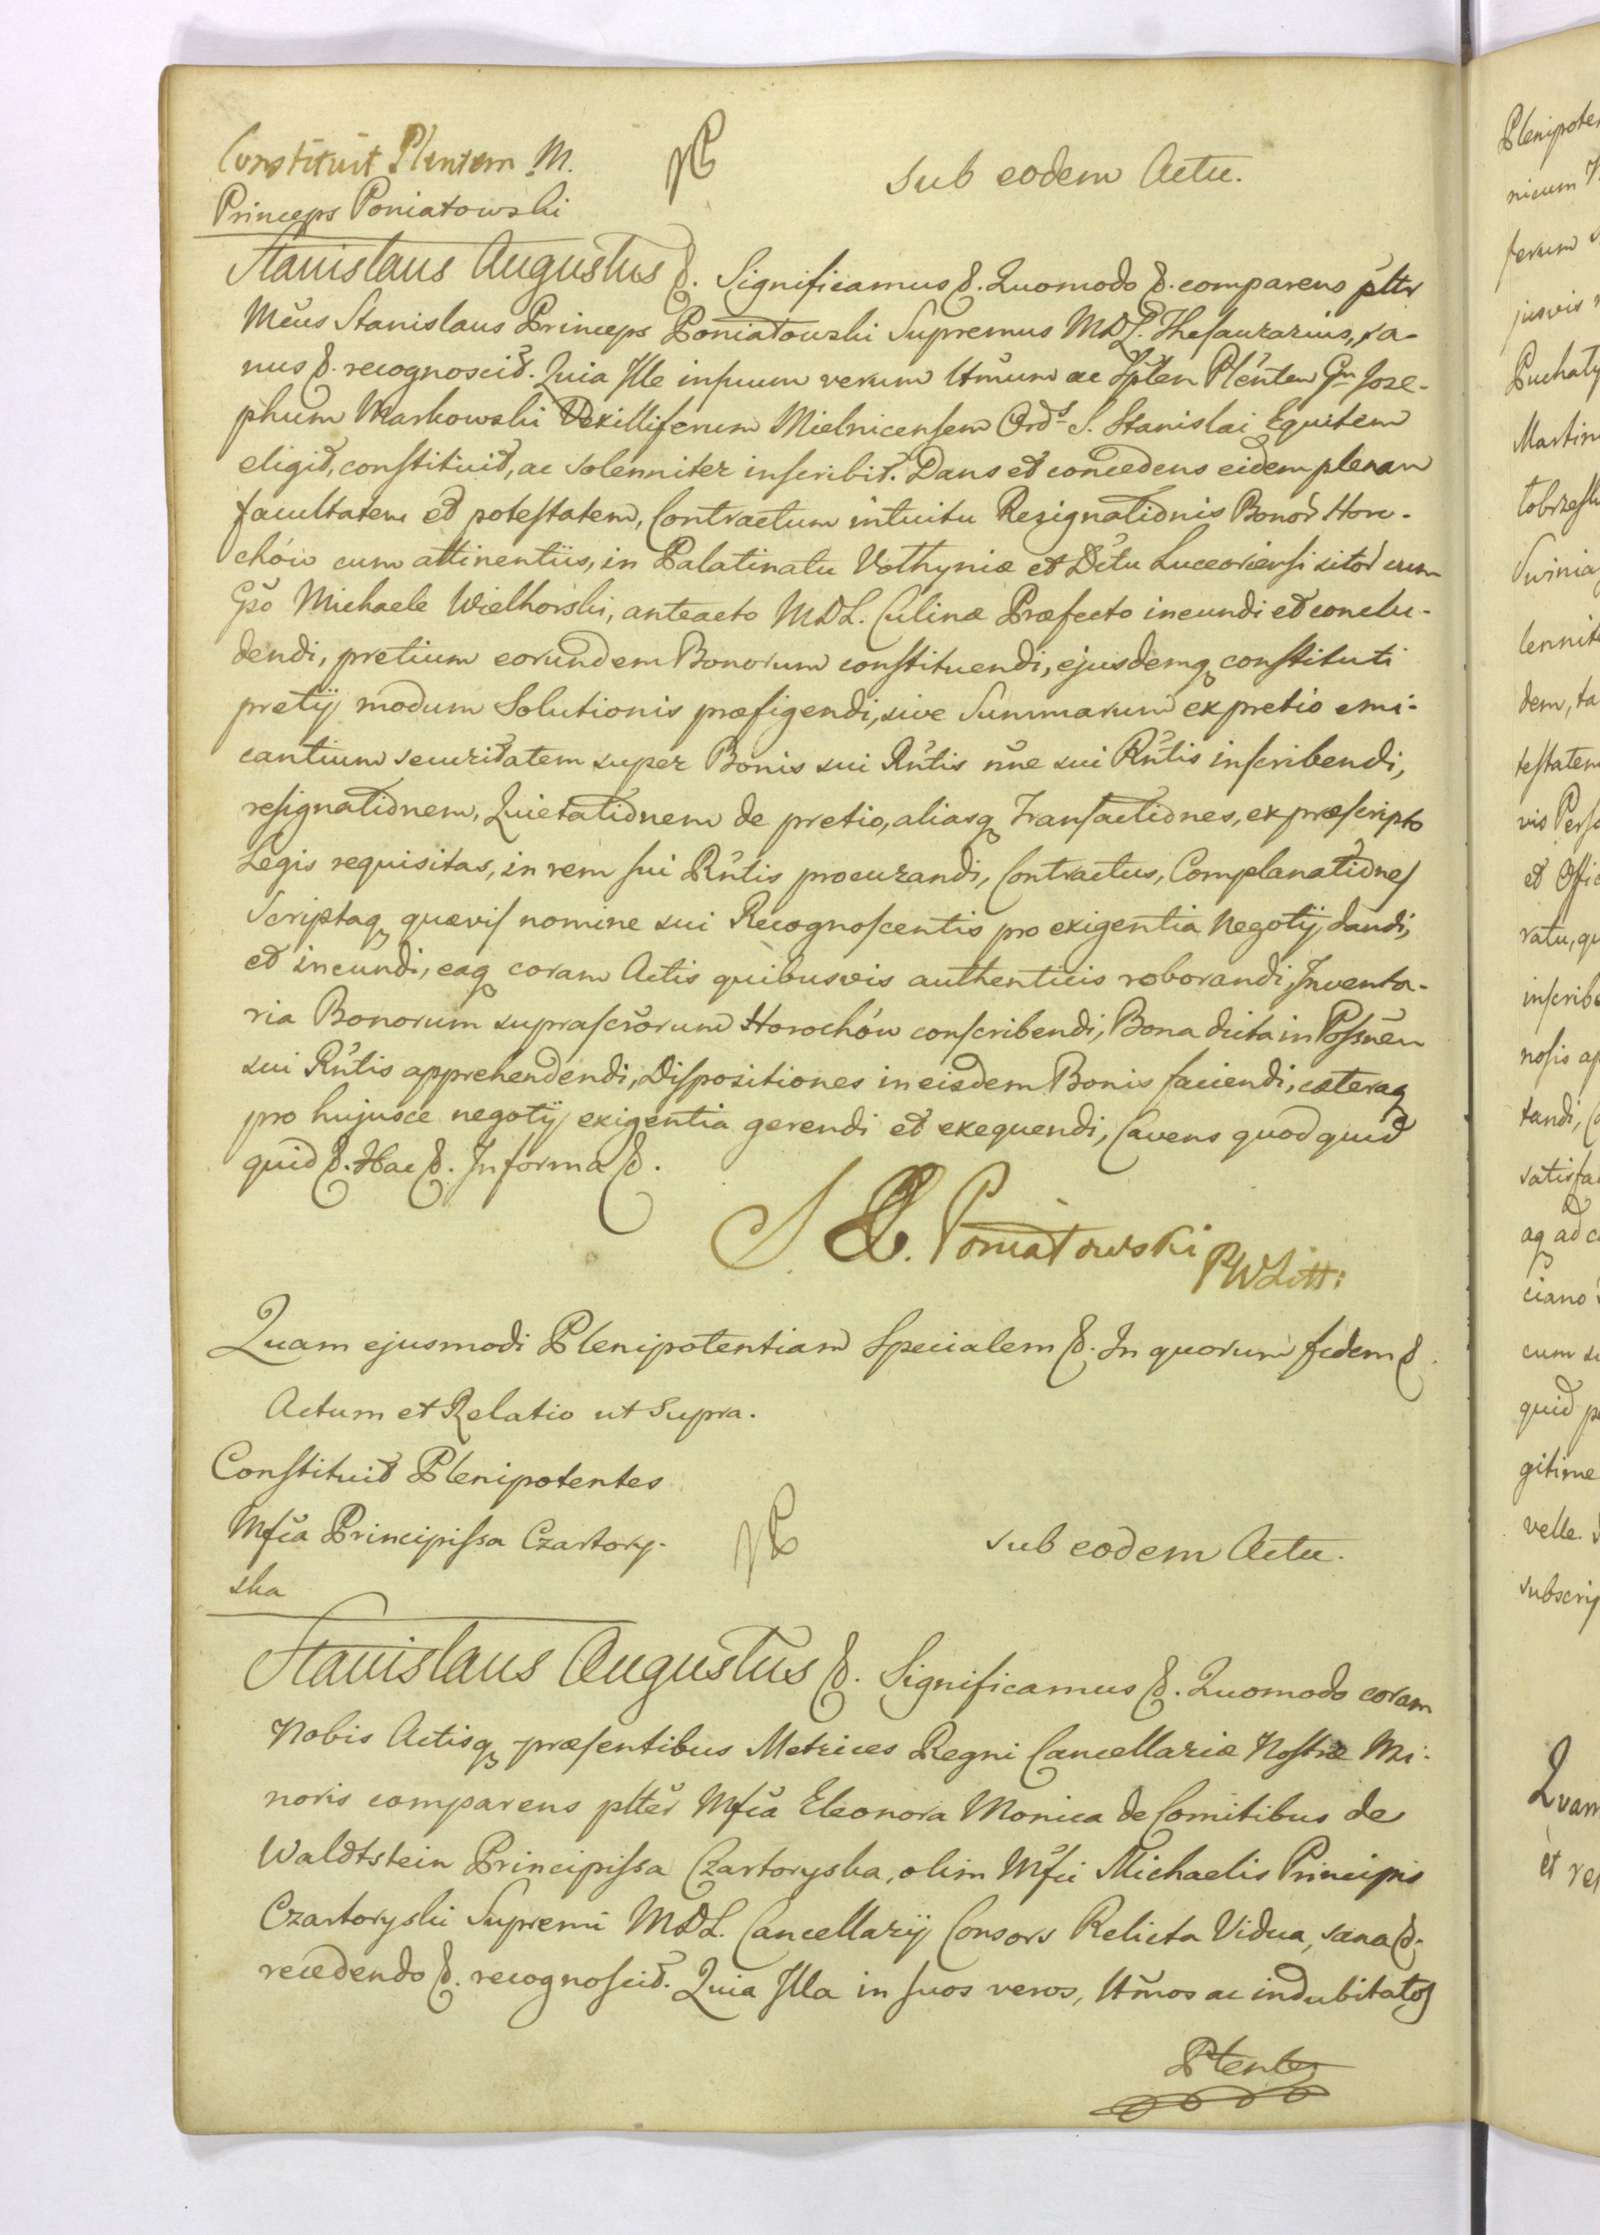 Constituit Plentem M.
Princeps Poniatowski
Sub eodem Actu.
Stanislaus Augustus &. Significamus &. Quomodo &. comparens pltr
Mcus Stanislaus Princeps Poniatowski Supremus MDL. Thesaurarius, sa-
nus &. recognoscit. Quia Ille in suum verum Ltmum ac Splem Plentem Gm Jose-
phum Markowski Vexilliferum Mielnicensem Ord. S. Stanislai Equitem
eligit, constituit, ac solenniter inscribit. Dans et concedens eidem plenam
facultatem et potestatem, Contractum intuitu Resignationis Bonor Horo-
chów cum attinentiis, in Palatinatu Volhyniæ et Dctu Luceoriensi sitor cum
Gso Michaele Wielhorski, anteacto MDL. Culinæ Præfecto ineundi et conclu-
dendi, pretium eorundem Bonorum constituendi, ejusdemq constituti
pretij modum Solutionis præfigendi, sive Summarum ex pretio emi-
cantium securitatem super Bonis sui Rntis nne sui Rntis inscribendi,
resignationem, Quietationem de pretio, aliasq Transactiones, ex præscripto
Legis requisitas, in rem sui Rntis procurandi, Contractus, Complanationes
Scriptaq quævis nomine sui Recognoscentis pro exigentia Negotij dandi,
et ineundi, eaq coram Actis quibusvis authenticis roborandi, Inventa-
ria Bonorum suprascrorum Horochów conscribendi, Bona dicta in Possnem
sui Rntis apprehendendi, Dispositiones in eisdem Bonis faciendi, cæteraq
pro hujusce negotij exigentia gerendi et exequendi, Cavens quod quid
quid &. Hac &. In forma &.
S. X. Poniatowski
PWLitt:
Quam ejusmodi Plenipotentiam Specialem &. In quorum fidem &.
Actum et Relatio ut Supra.
Constituit Plenipotentes
Mfca Principissa Czartory-
ska
Sub eodem Actu.
Stanislaus Augustus &. Significamus &. Quomodo coram
Nobis Actisq præsentibus Metrices Regni Cancellariæ Nostræ Mi-
noris comparens plter Mfca Eleonora Monica de Comitibus de
Waldtstein Principissa Czartoryska, olim Mfci Michaelis Principis
Czartoryski Supremi MDL. Cancellarij Consors Relicta Vidua, sana &.
recedendo &. recognoscit. Quia Illa in suos veros, Ltmos ac indubitatos
Plentes